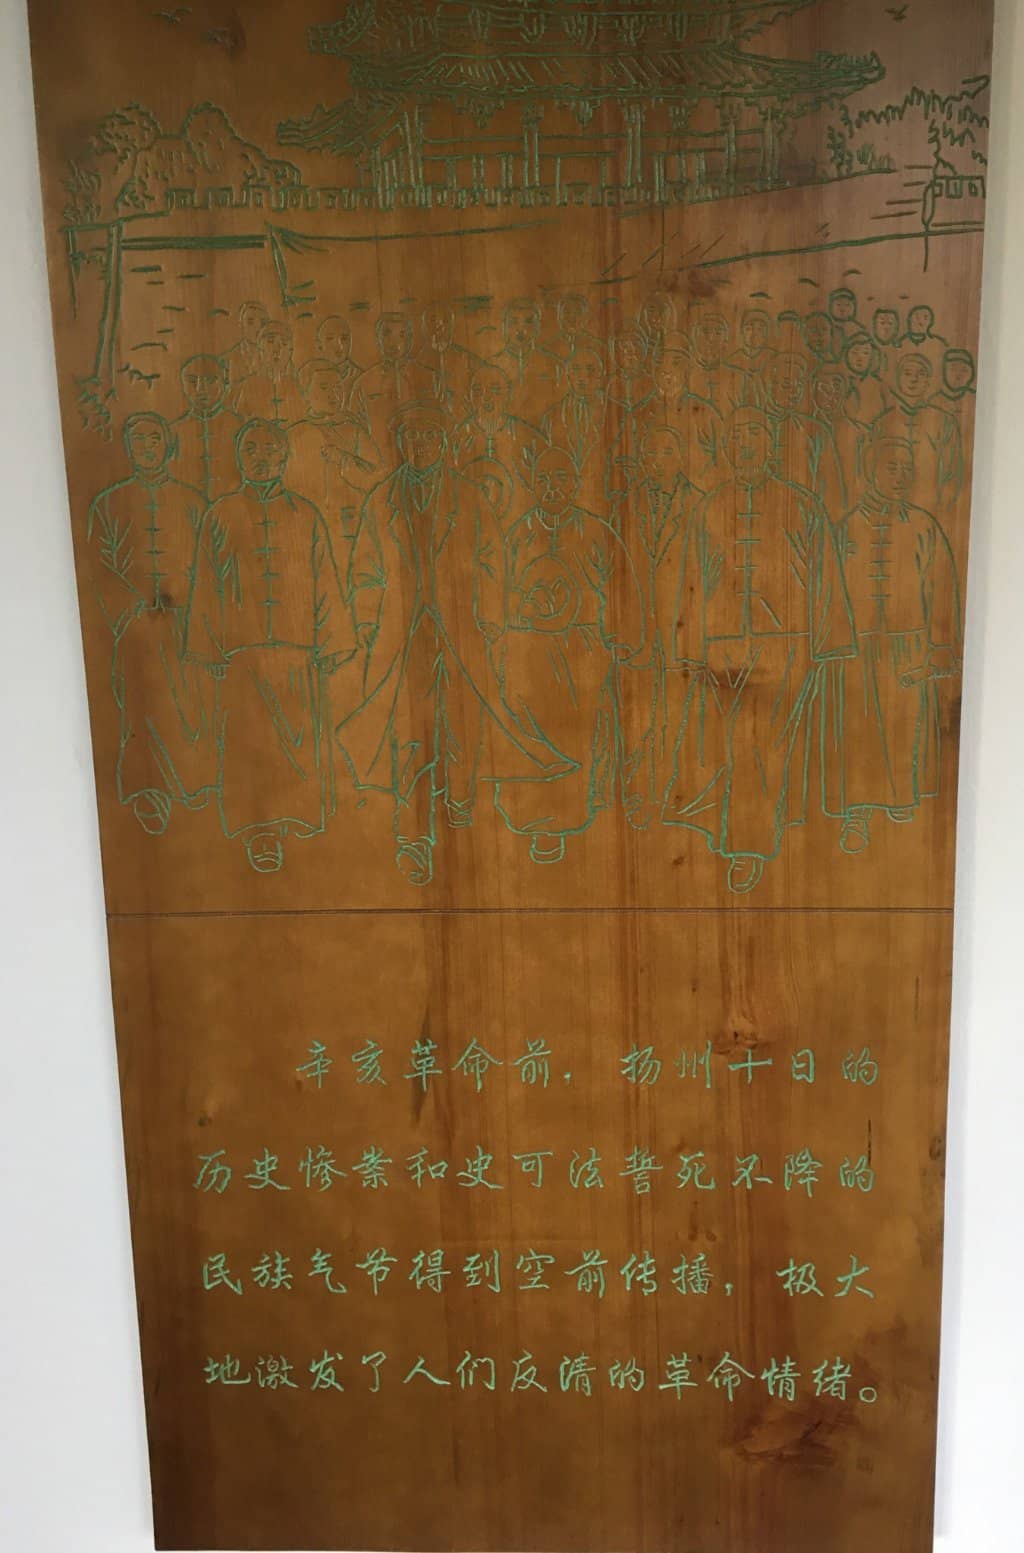 辛亥革命前，扬州十日的
历史惨案和史可法誓死不降的
民族气节得到空前传播，极大
地激发了人们反清的革命情绪。